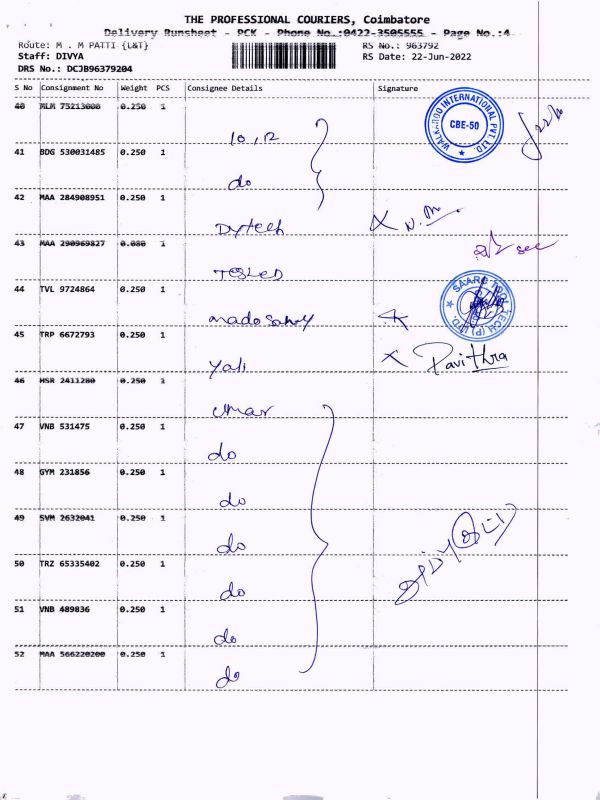 THE PROFESSIONAL COURIERS, Coimbatore
Delivery Runsheet - PCK - Phone No.:0422-3505555 - Page No.:4
Route: M . M PATTI {L&T} RS No.: 963792
Staff: DIVYA RS Date: 22-Jun-2022
DRS No.: DCJB96379204
S No Consignment No Weight PCS Consignee Details Signature
40 MLM 75213008 0.250 1
10, 12
WALKAROO INTERNATIONAL PVT. LTD.
CBE-50
41 BDG 530031485 0.250 1
do
42 MAA 284908951 0.250 1
Dytech
43 MAA 290969827 0.080 1
44 TVL 9724864 0.250 1
SAARC TOOL TECH (P) LTD.
45 TRP 6672793 0.250 1
Yali
Pavithra
46 HSR 2411280 0.250 1
Umar
47 VNB 531475 0.250 1
do
48 GYM 231856 0.250 1
do
49 SVM 2632041 0.250 1
do
50 TRZ 65335402 0.250 1
do
51 VNB 489836 0.250 1
do
52 MAA 566220200 0.250 1
do